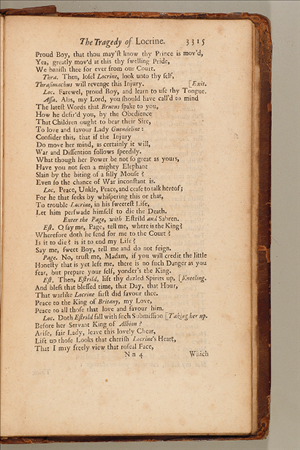 The Tragedy of Locrine. 3315
Proud Boy, that thou may'st know thy Prince is mov'd,
Yea, greatly mov'd at this thy swelling Pride,
We banish thee for ever from our Court.
Thra. Then, losel Locrine, look unto thy self,
Thrasimachus will revenge this Injury. [Exit.
Loc. Farewel, proud Boy, and learn to use thy Tongue.
Assa. Alas, my Lord, you should have call'd to mind
The latest Words that Brutus spake to you,
How he desir'd you, by the Obedience
That Children ought to bear their Sire,
To love and favour Lady Guendeline:
Consider this, that if the Injury
Do move her mind, as certainly it will,
War and Dissention follows speedily.
What though her Power be not so great as yours,
Have you not seen a mighty Elephant
Slain by the biting of a silly Mouse?
Even so the chance of War inconstant is.
Loc. Peace, Unkle, Peace, and cease to talk hereof;
For he that seeks by whispering this or that,
To trouble Locrine, in his sweetest Life,
Let him perswade himself to die the Death.
Enter the Page, with Estrild and Sabren.
Est. O say me, Page, tell me, where is the King?
Wherefore doth he send for me to the Court?
Is it to die? is it to end my Life?
Say me, sweet Boy, tell me and do not feign.
Page. No, trust me, Madam, if you will credit the little
Honesty that is yet left me, there is no such Danger as you
fear, but prepare your self, yonder's the King.
Est. Then, Estrild, lift thy dazled Spirits up, [Kneeling.
And bless that blessed time, that Day, that Hour,
That warlike Locrine first did favour thee.
Peace to the King of Britany, my Love,
Peace to all those that love and favour him.
Loc. Doth Estrild fall with such Submission [Taking her up.
Before her Servant King of Albion?
Arise, fair Lady, leave this lovely Chear,
Lift up those Looks that cherish Locrine's Heart,
That I may freely view that roseal Face,
N n 4 Which